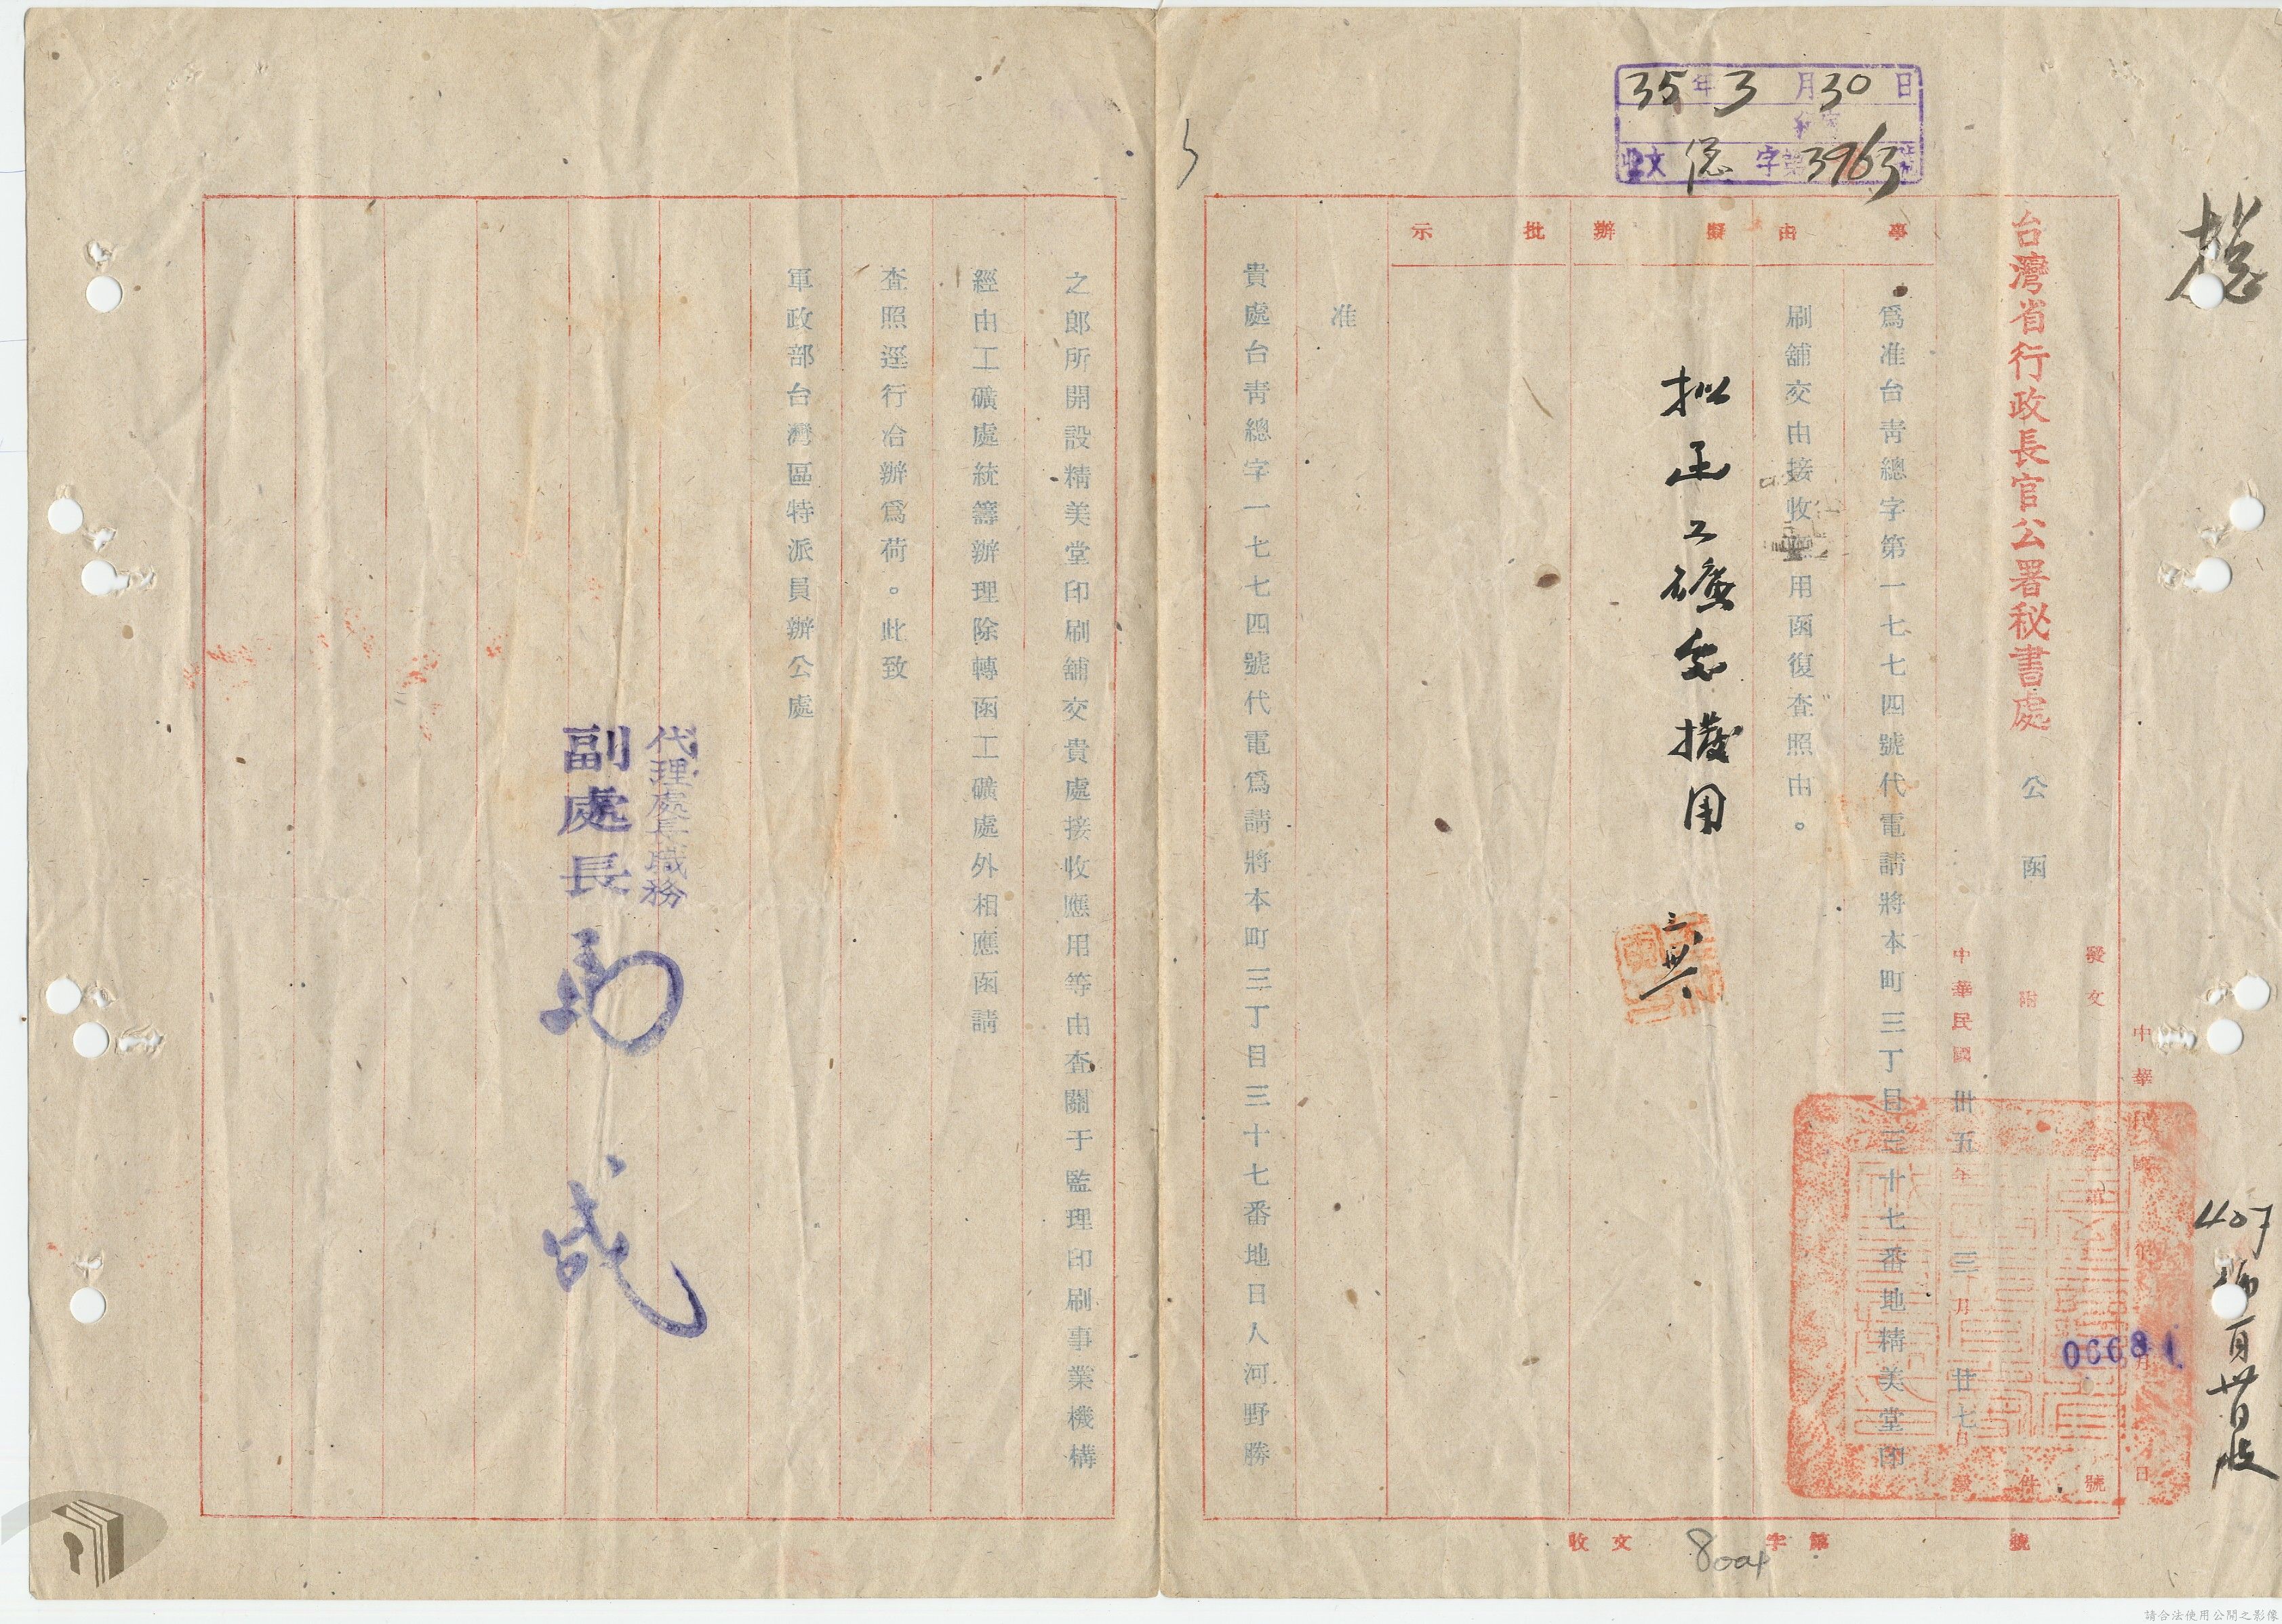 35年3月30日
收文 總 字第3963號
總
台灣省行政長官公署秘書處 公函
中華民國 年 月 日
發文 字第 號
附 件
00681
中華民國卅五年三月廿七日 發
407
事由
擬辦
批示
為准台青總字第一七七四號代電請將本町三丁目三十七番地精美堂印
刷舖交由接收應用函復查照由。
拟函工礦處撥用
准
貴處台青總字一七七四號代電為請將本町三丁目三十七番地日人河野勝
之郎所開設精美堂印刷舖交貴處接收應用等由查關于監理印刷事業機構
經由工礦處統籌辦理除轉函工礦處外相應函請
查照逕行洽辦為荷。此致
軍政部台灣區特派員辦公處
代理處長職務
副處長
收文 字第 號
800
請合法使用公開之影像